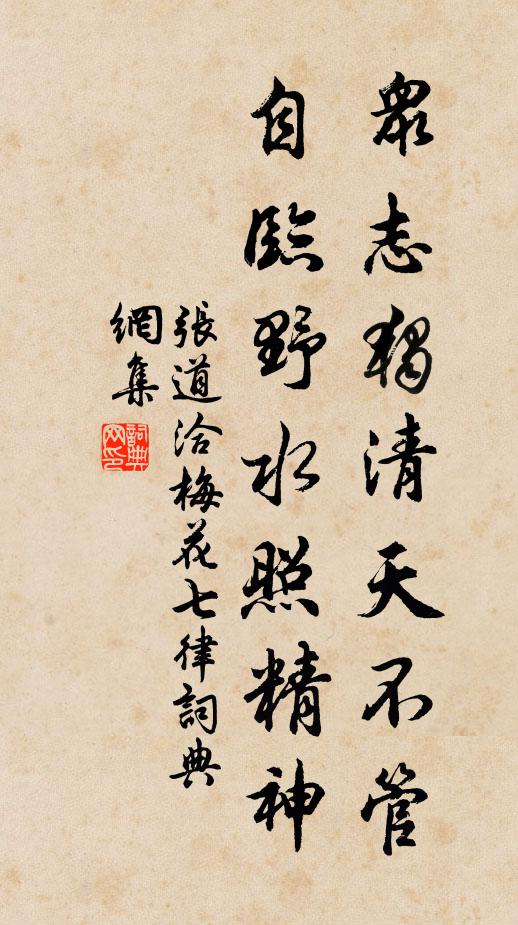 眾志獨清天不管
自臨野水照精神
張道洽梅花七律詞典
網集
詞典網印